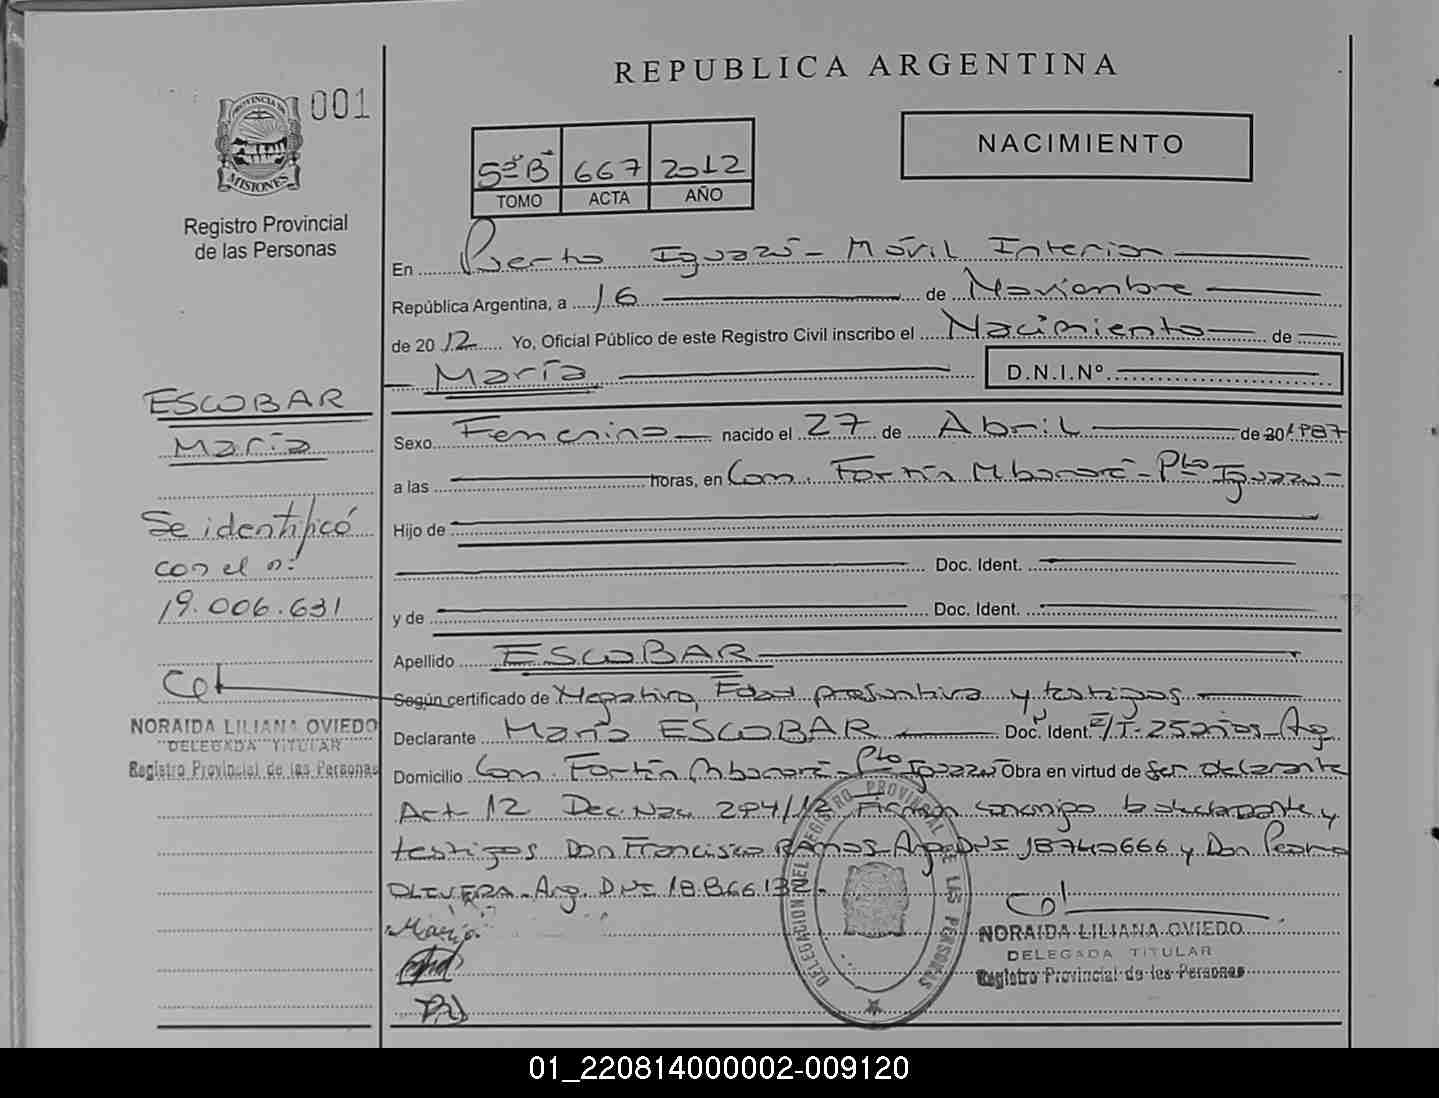 REPUBLICA ARGENTINA
001
PROVINCIA DE
MISIONES
Registro Provincial
de las Personas
5º B 667 2012
TOMO ACTA AÑO
NACIMIENTO
En Puerto Iguazú - Móvil Interior
República Argentina, a 16 de Noviembre
de 2012 Yo, Oficial Público de este Registro Civil inscribo el Nacimiento de
María D.N.I.Nº
ESCOBAR
María
Se identificó
con el nº
19.006.631
NORAIDA LILIANA OVIEDO
DELEGADA TITULAR
Registro Provincial de las Personas
Sexo Femenino nacido el 27 de Abril de 20 1987
a las horas, en Com. Fortín Mbororé - Pto Iguazú
Hijo de
Doc. Ident.
y de Doc. Ident.
Apellido ESCOBAR
Según certificado de Negativo, Edad presuntiva y testigos
Declarante María ESCOBAR Doc. Ident. 25 años - Arg
Domicilio Com. Fortín Mbororé - Pto Iguazú Obra en virtud de Ser declarante
Art 12 Dec. Nac. 294/12 Firman conmigo la declarante y
testigos Don Francisco RAMOS - Arg DNI 18740666 y Don Pedro
OLIVERA - Arg. DNI 18.866132.
María
DELEGACION DEL REGISTRO PROVINCIAL DE LAS PERSONAS
NORAIDA LILIANA OVIEDO
DELEGADA TITULAR
Registro Provincial de las Personas
01_220814000002-009120